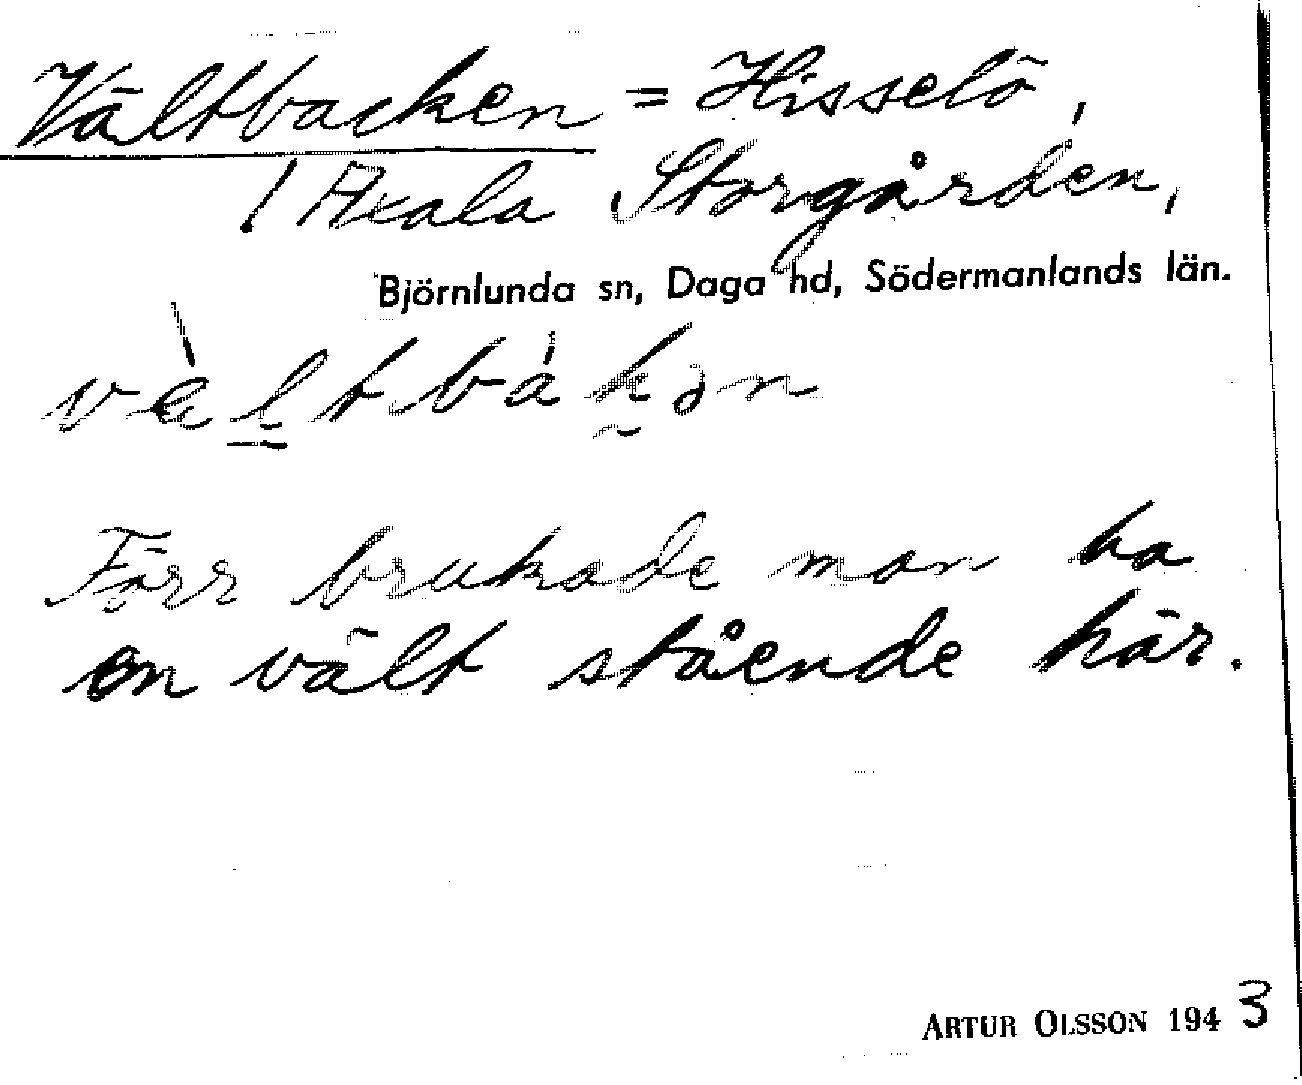 Vältbacken = Hisselö,
/ Axala Storgården,
Björnlunda sn, Daga hd, Södermanlands län.
vèltbákən
Förr brukade man ha
en vält stående här.
ARTUR OLSSON 1943